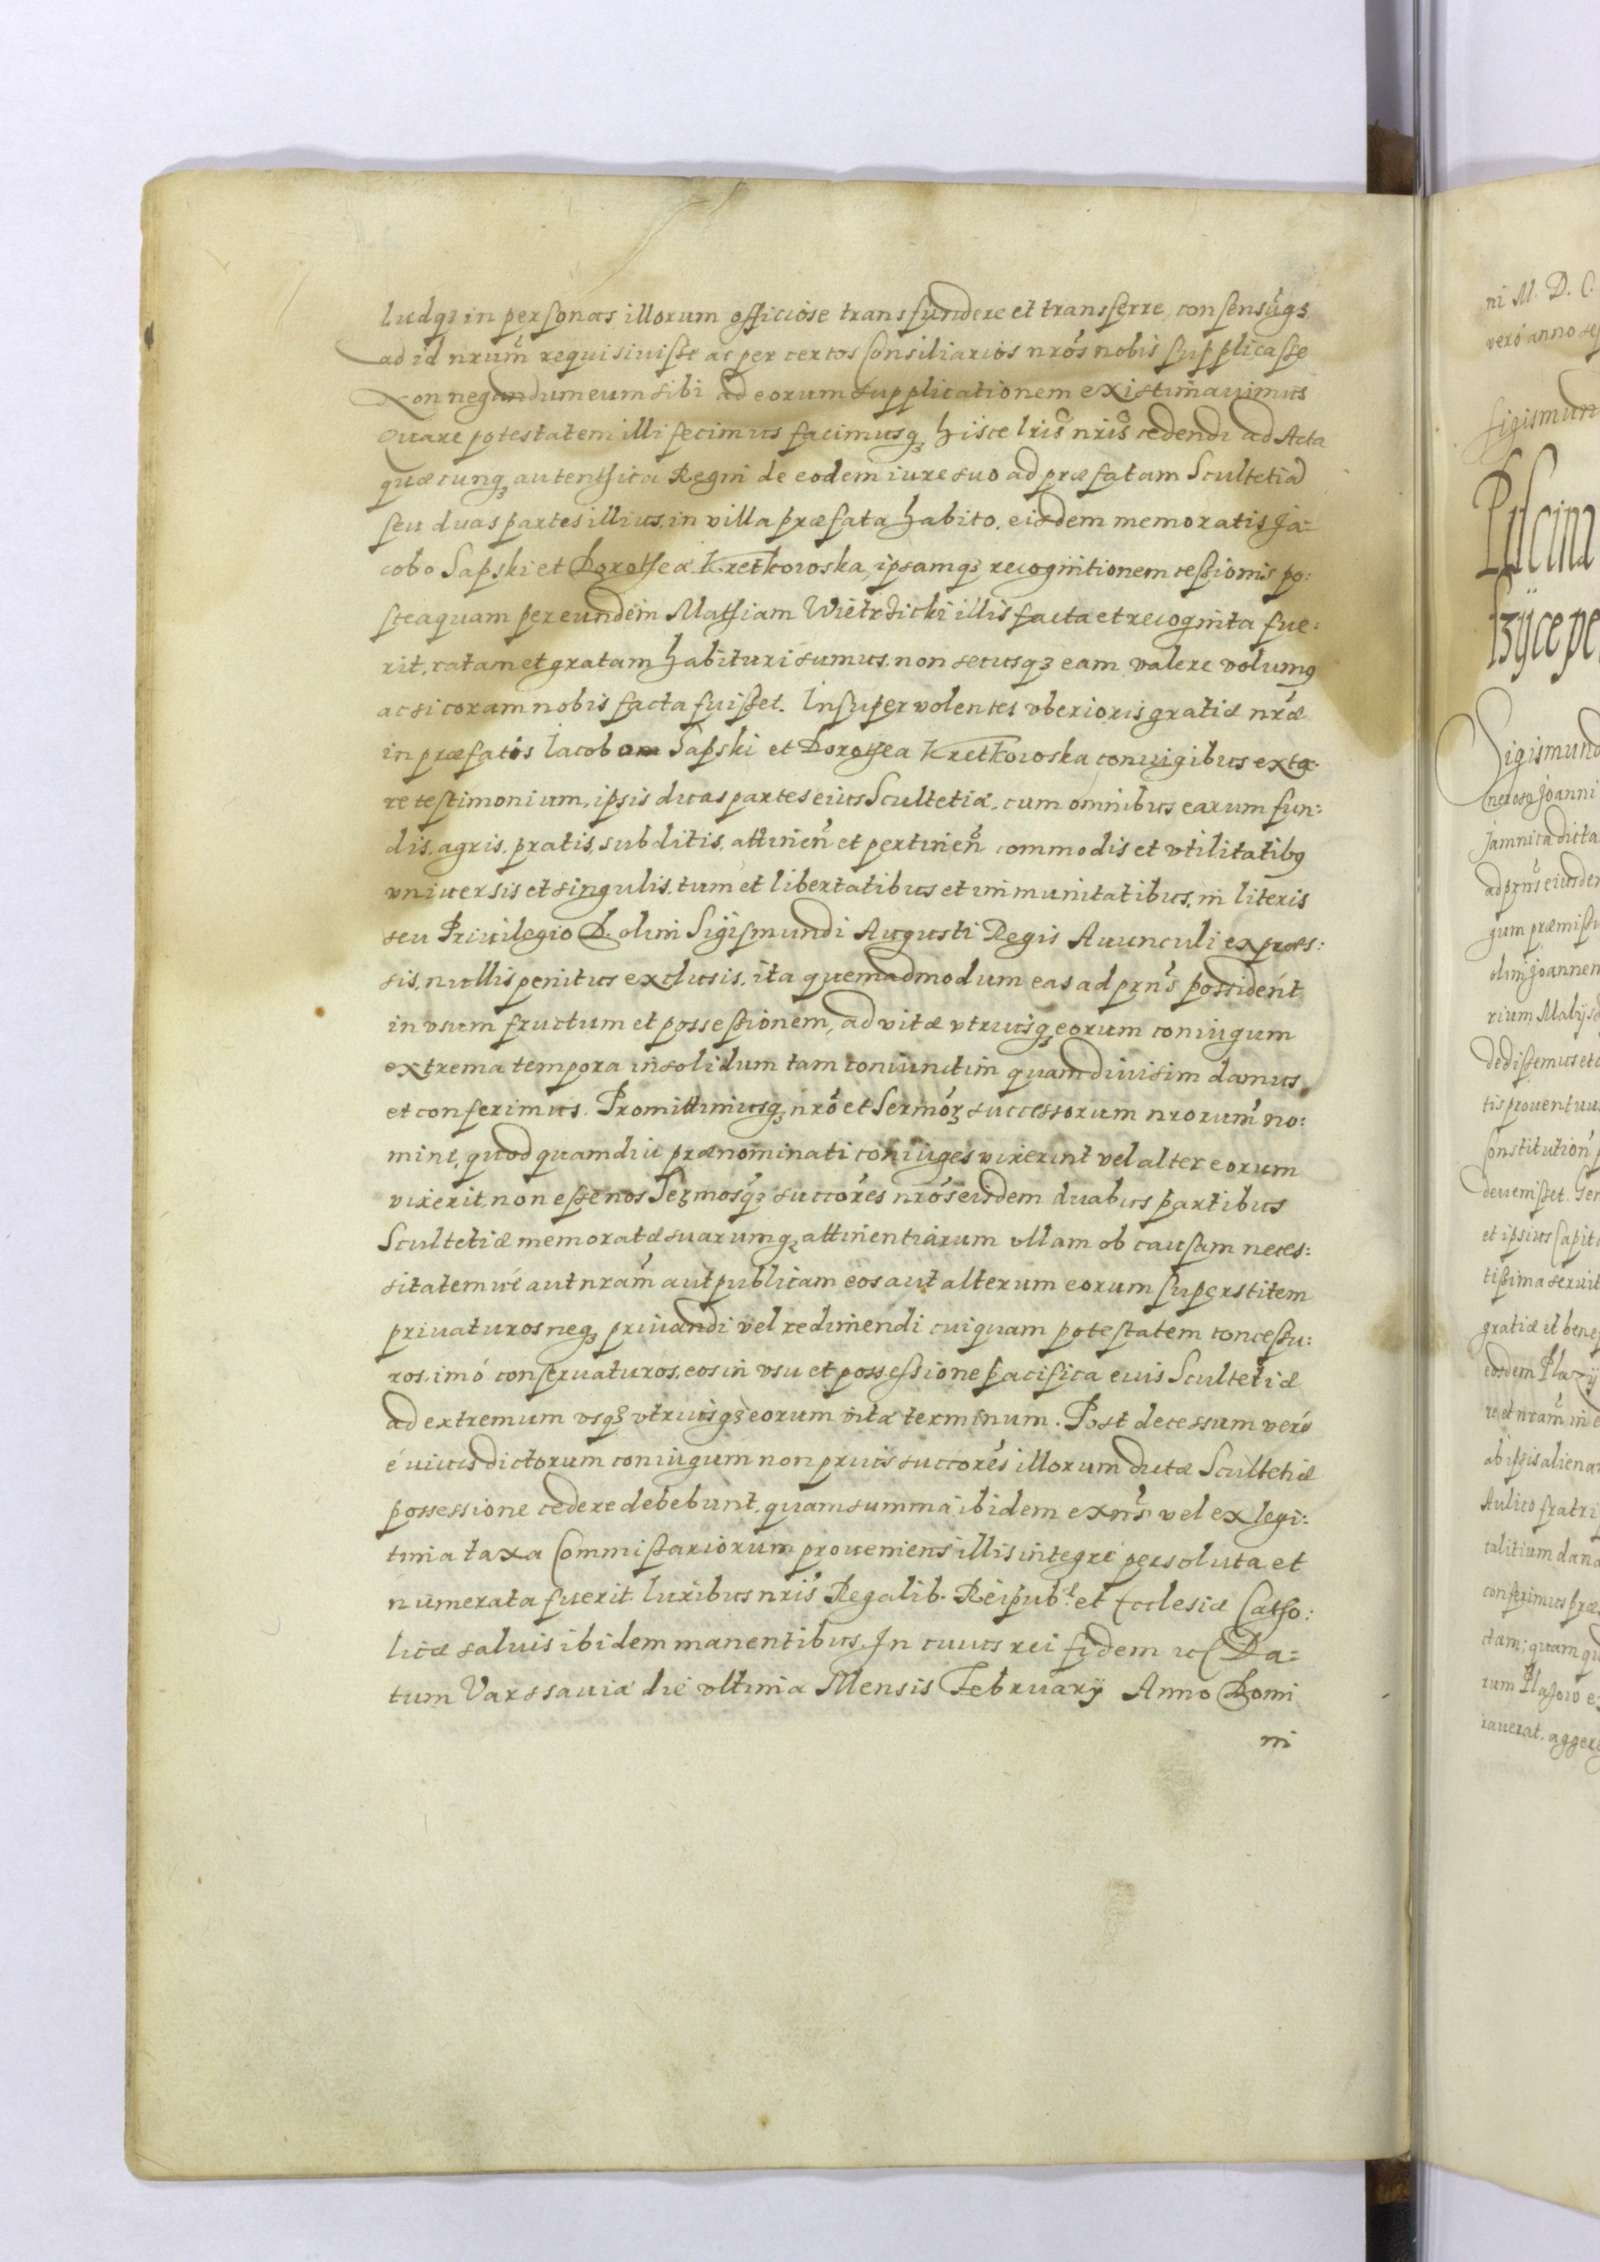 Iudq₃ in personas illorum officiose transfundere et transferre, consensũq₃
ad id nrum̃ requisiuisse ac per certos Consiliarios nros̃ nobis supplicasse
Non negandum eum sibi ad eorum supplicationem existimauimus
Quare potestatem illi fecimus facimusq₃ hisce lris̃ nris̃ cedendi ad Acta
quæcunq₃ authentica Regni de eodem iure suo ad præfatam Scultetiã
seu duas partes illius, in villa præfata habito, eisdem memoratis Ja=
cobo Sapski et Dorotheæ Kretkowska, ipsamq₃ recognitionem cessionis po:
steaquam per eundem Mathiam Wietrzicki illis facta et recognita fue:
rit, ratam et gratam habituri sumus, non secusq₃ eam valere volumq
ac si coram nobis facta fuisset. Insuper volentes vberioris gratiæ nræ̃
in præfatos Iacobom Sapski et Dorothea Kretkowska coniugibus exta:
re testimonium, ipsis duas partes eius Scultetiæ, cum omnibus earum fun:
dis, agris, pratis, subditis, attineñ et pertineñ commodis et vtilitatibq
vniuersis et singulis, tum et libertatibus et immunitatibus, in literis
seu Priuilegio D. olim Sigismundi Augusti Regis Auunculi expres:
sis, nullis penitus exclusis, ita quemadmodum eas ad prñs possident
in vsum fructum et possessionem, ad vitæ vtriusq₃ eorum coniugum
extrema tempora insolidum tam coniunctim quam diuisim damus
et conferimus. Promittimusq₃ nrõ et Sermor̃₃ successorum nrorum̃ no:
mine, quod quamdiu prænominati coniuges vixerint vel alter eorum
vixerit, non esse nos Serm̃osq₃ succores̃ nros̃ eisdem duabus partibus
Scultetiæ memoratæ suarumq₃ attinentiarum vllam ob causam neces:
sitatemue aut nram̃ aut publicam eos aut alterum eorum superstitem
priuaturos neq₃ priuandi vel redimendi cuiquam potestatem concessu:
ros, imó conseruaturos, eos in vsu et possessione pacifica euis Scultetiæ
ad extremum vsq₃ vtriusq₃ eorum vitæ terminum. Post decessum veró
é viuis dictorum coniugum non prius succores̃ illorum dictæ Scultetiæ
possessione cedere debebunt, quam summa ibidem exñs vel ex legi:
tima taxa Commissariorum proueniens illis integré persoluta et
numerata fuerit. Iuribus nris̃ Regalib. Reipub.ͤ et Ecclesiæ Catho:
licæ saluis ibidem manentibus. In cuius rei fidem ꝛc Da=
tum Varssauiæ die vltima Mensis Februarij Anno Domi
ni
ni M. D. C.
Sigismund
Piscina
Sigismund
neroso Joanni
Jamnica dicta
gum præmissi
olim Joannem
rium Malijs
dedissemus et
tis prouentuu
Constitution̄
deuenisset. Gen
et ipsius Capit
tissima seruit
gratiæ et bene
eosdem Plaz
re, et nram̃ in e
ab ipsis aliena
Aulico fratri
talitium dan
conferimus præ
ctam, quam qu
rum Plasow e
iauerat, agger